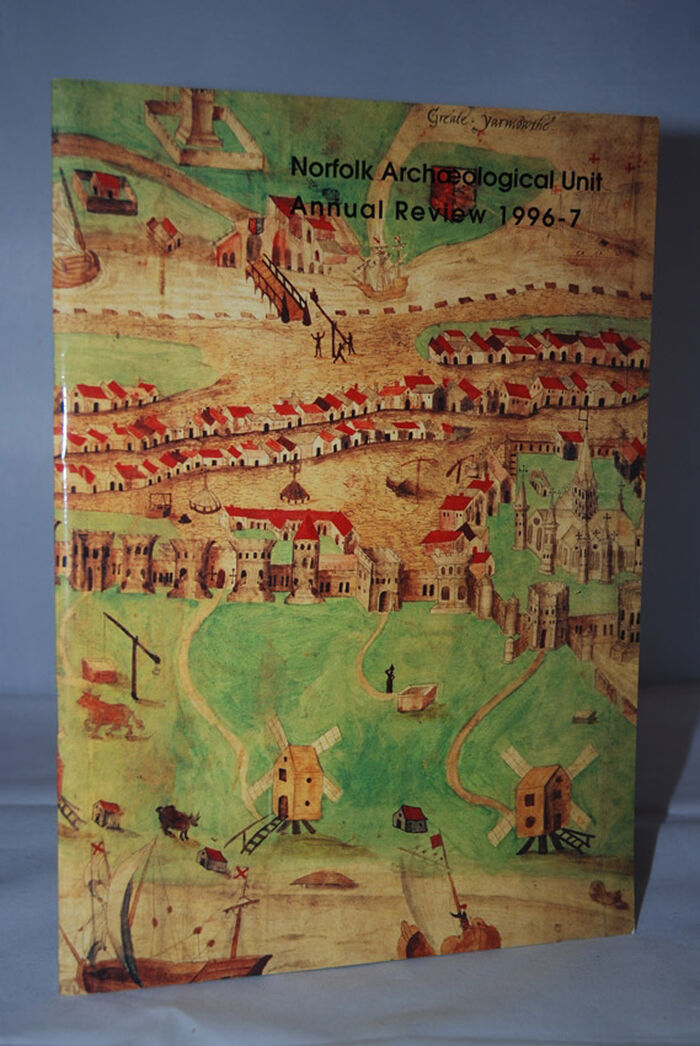 Greate · Yarmowthe
Norfolk Archæological Unit
Annual Review 1996-7